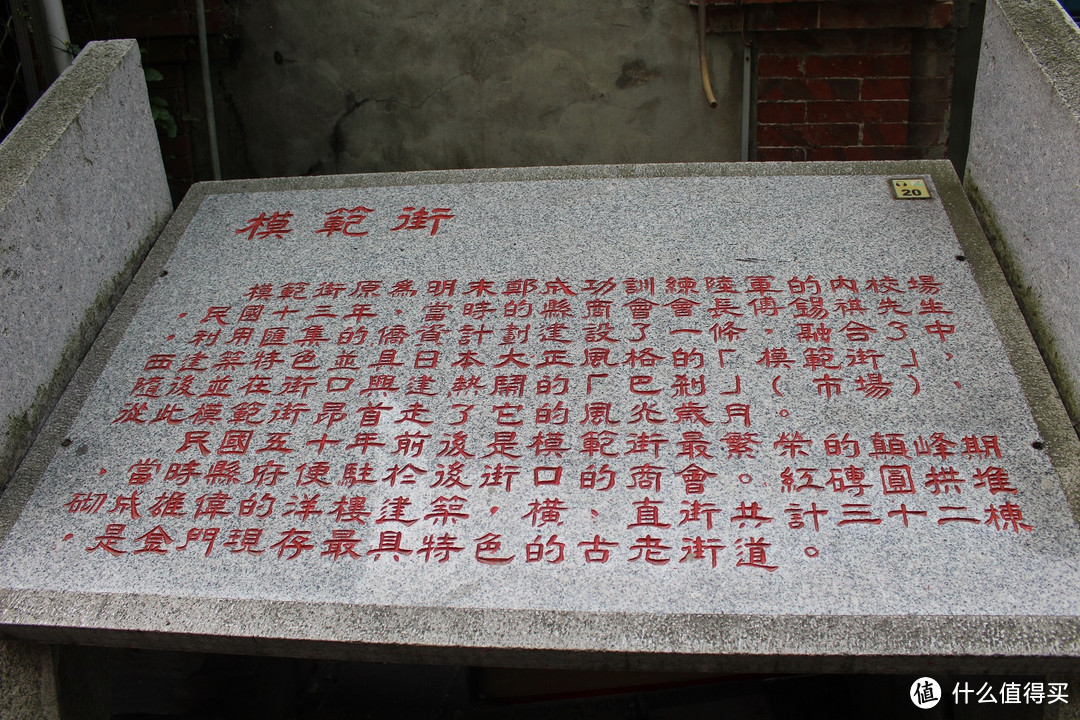 模範街
模範街原為明末鄭成功訓練陸軍的內校場
。民國十三年,當時的縣商會會長傅錫祺先生
,利用匯集的僑資計劃建設了一條融合了中
西建築特色並具日本大正風格的「模範街」,
隨後並在街口興建熱鬧的「巴剎」(市場),
從此模範街昂首走了它的風光歲月。
民國五十年前後是模範街最繁榮的顛峰期
,當時縣府便駐於後街口的商會。紅磚圓拱堆
砌成雄偉的洋樓建築,橫、直街共計三十二棟
,是金門現存最具特色的古老街道。
20
值 什么值得买